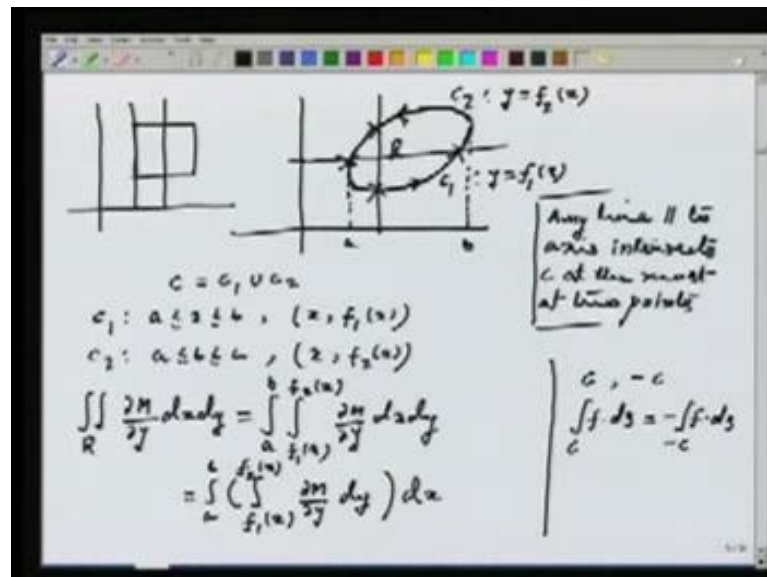 C₂ : y = f₂(x)
R
C₁ : y = f₁(x)
a b
Any line || to
axis intersects
C at the most
at two points
C = C₁ ∪ C₂
C₁ : a ≤ x ≤ b , (x, f₁(x))
C₂ : a ≤ b ≤ b , (x, f₂(x))
∬_R ∂M/∂y dxdy = ∫_a^b ∫_{f₁(x)}^{f₂(x)} ∂M/∂y dxdy
= ∫_a^b ( ∫_{f₁(x)}^{f₂(x)} ∂M/∂y dy ) dx
C , -C
∫_C f·ds = -∫_{-C} f·ds